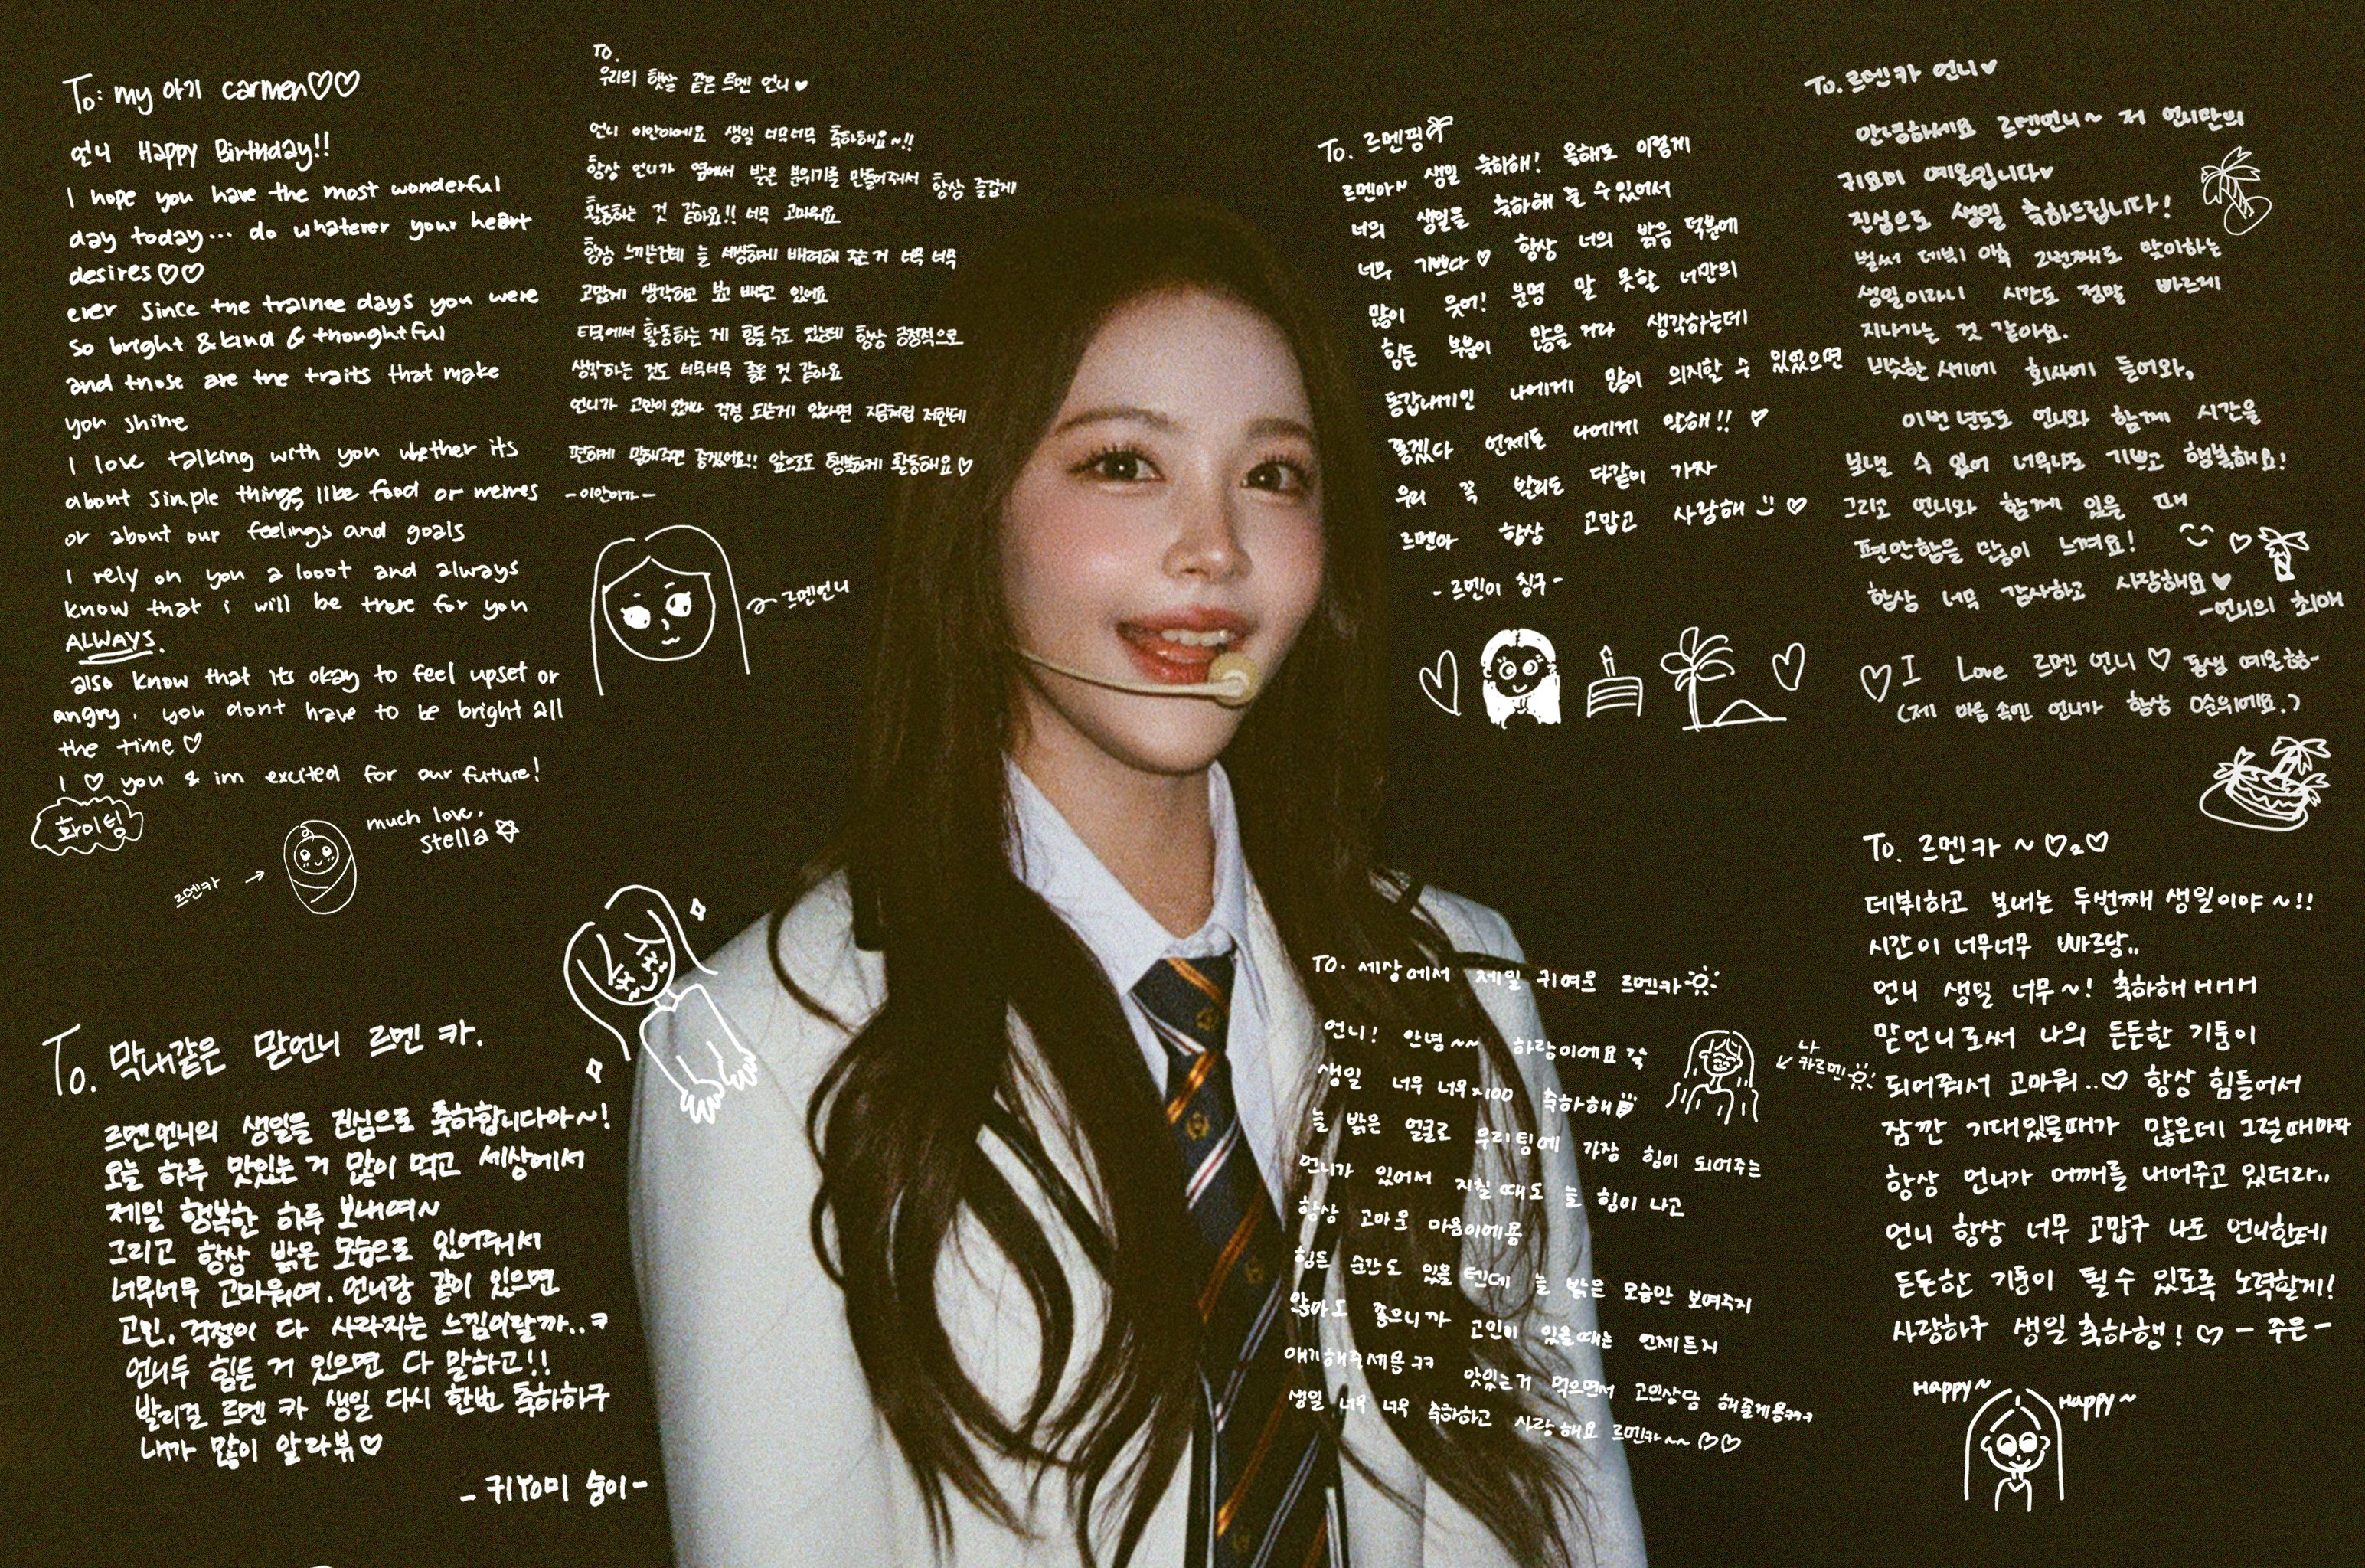 To: my 아기 carmen♡♡
언니 Happy Birthday!!
I hope you have the most wonderful
day today... do whatever your heart
desires♡♡
ever since the trainee days you were
so bright & kind & thoughtful
and those are the traits that make
you shine
I love talking with you whether its
about simple things like food or memes
or about our feelings and goals
I rely on you a looot and always
know that i will be there for you
ALWAYS.
also know that its okay to feel upset or
angry. you dont have to be bright all
the time♡
I ♡ you & im excited for our future!
화이팅
much love,
stella☆
르멘카 →
To.
우리의 햇살 같은 르멘 언니♥
언니 이안이에요 생일 너무너무 축하해요~!!
항상 언니가 옆에서 밝은 분위기를 만들어줘서 항상 즐겁게
활동하는 것 같아요!! 너무 고마워요
항상 느끼는건데 늘 세심하게 배려해 주는거 너무 너무
고맙게 생각하고 보고 배우고 있어요
타국에서 활동하는 게 힘들 수도 있는데 항상 긍정적으로
생각하는 것도 너무너무 좋은 것 같아요
언니가 고민이 있거나 걱정 되는게 있다면 지금처럼 저한테
편하게 말해주면 좋겠어요!! 앞으로도 행복하게 활동해요♡
-이안이가-
르멘언니
To. 르멘핑
르멘아~ 생일 축하해! 올해도 이렇게
너의 생일을 축하해 줄 수 있어서
너무 기쁘다♡ 항상 너의 밝음 덕분에
많이 웃어! 분명 말 못할 너만의
힘든 부분이 많을 거라 생각하는데
동갑내기인 나에게 많이 의지할 수 있었으면
좋겠다 언제든 나에게 말해!! ♡
우리 꼭 발리도 다같이 가자
르멘아 항상 고맙고 사랑해 :) ♡
- 르멘이 친구 -
To. 르멘카 언니♥
안녕하세요 르멘언니~ 저 언니만의
귀요미 예온입니다♥
진심으로 생일 축하드립니다!
벌써 데뷔 이후 2번째로 맞이하는
생일이라니 시간도 정말 빠르게
지나가는 것 같아요.
비슷한 시기에 회사에 들어와,
이번 년도도 언니와 함께 시간을
보낼 수 있어 너무나도 기쁘고 행복해요!
그리고 언니와 함께 있을 때
편안함을 많이 느껴요!
항상 너무 감사하고 사랑해요♥
-언니의 최애
♡ I Love 르멘 언니♡ 동생 예온
(제 마음 속엔 언니가 항상 0순위에요.)
To. 막내같은 맏언니 르멘 카.
르멘언니의 생일을 진심으로 축하합니다아~!
오늘 하루 맛있는 거 많이 먹고 세상에서
제일 행복한 하루 보내여~
그리고 항상 밝은 모습으로 있어줘서
너무너무 고마워여. 언니랑 같이 있으면
고민, 걱정이 다 사라지는 느낌이랄까..ㅋ
언니두 힘든 거 있으면 다 말하고!!
발리걸 르멘 카 생일 다시 한번 축하하구
내가 많이 알라뷰♡
- 귀Yomi 숭이-
To. 세상에서 제일 귀여운 르멘카
언니! 안녕~~ 하람이에요
생일 너무 너무×100 축하해
늘 밝은 얼굴로 우리팀에 가장 힘이 되어주는
언니가 있어서 지칠 때도 늘 힘이 나고
항상 고마운 마음이에용
힘든 순간도 있을 텐데 늘 밝은 모습만 보여주지
않아도 좋으니까 고민이 있을때는 언제든지
얘기해주세용 ㅋㅋ 맛있는거 먹으면서 고민상담 해줄게용ㅋㅋㅋ
생일 너무 너무 축하하고 사랑해요 르멘카~~ ♡♡
나
카르멘
To. 르멘카 ~ ♡.♡
데뷔하고 보내는 두번째 생일이야~!!
시간이 너무너무 빠르당..
언니 생일 너무~! 축하해ㅐㅐㅐ
맏언니로써 나의 든든한 기둥이
되어줘서 고마워..♡ 항상 힘들어서
잠깐 기대있을때가 많은데 그럴때마다
항상 언니가 어깨를 내어주고 있더라..
언니 항상 너무 고맙구 나도 언니한테
든든한 기둥이 될 수 있도록 노력할게!
사랑하구 생일 축하행! ♡ - 주은 -
Happy~ Happy~